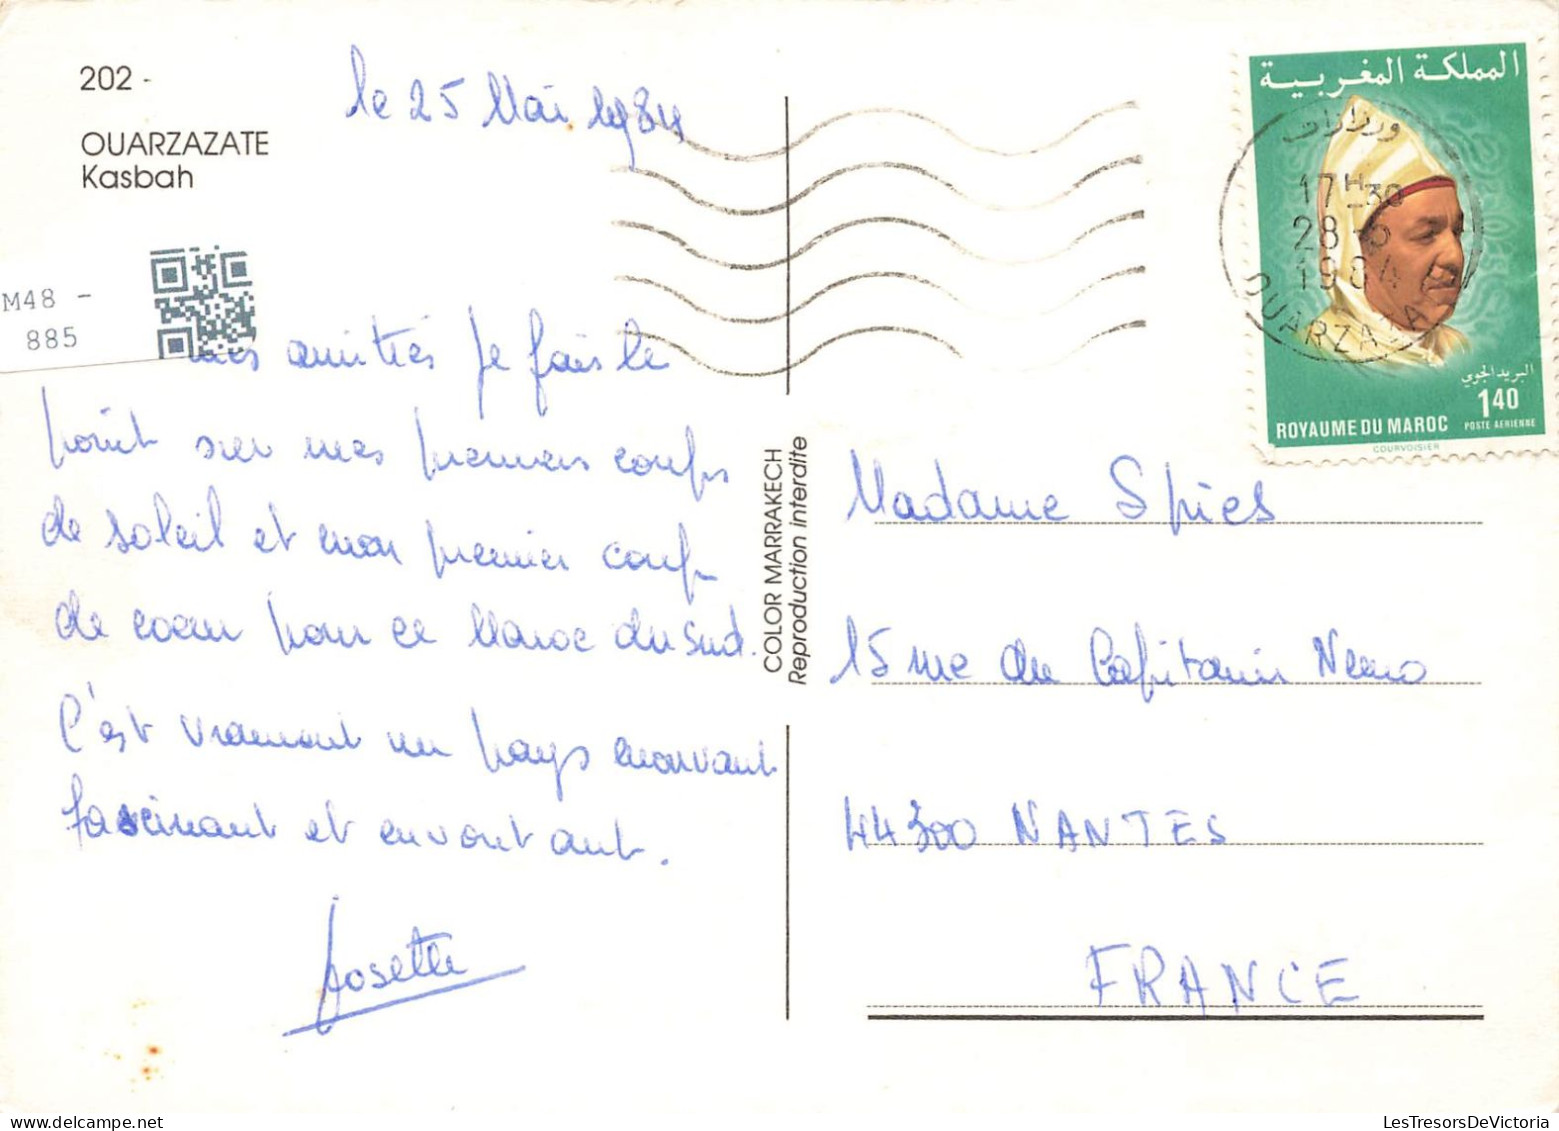 202 -
OUARZAZATE
Kasbah
le 25 Mai 1984
M48 -
885
mes amitiés je fais le
point sur mes premiers coups
de soleil et mon premier coup
de coeur pour ce Maroc du Sud.
C'est vraiment un pays
fascinant et envoutant.
Josette
COLOR MARRAKECH
Reproduction interdite
المملكة المغربية
ورزازات
17H30
28-5
1984
OUARZAZA
البريد الجوي
1,40
ROYAUME DU MAROC
POSTE AERIENNE
COURVOISIER
Madame Spies
15 rue du Capitaine Nemo
44300 NANTES
FRANCE
LesTresorsDeVictoria